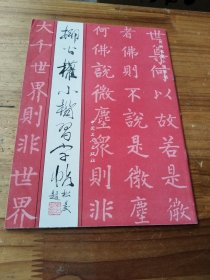 世尊何以故若是微
者佛則不說是微塵
何佛說微塵衆則非
大千世界則非世界
柳公權小楷習字帖